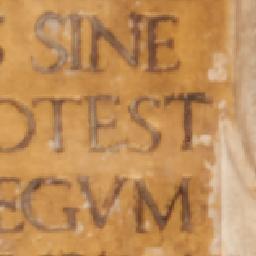 S SINE
OTEST
EGVM